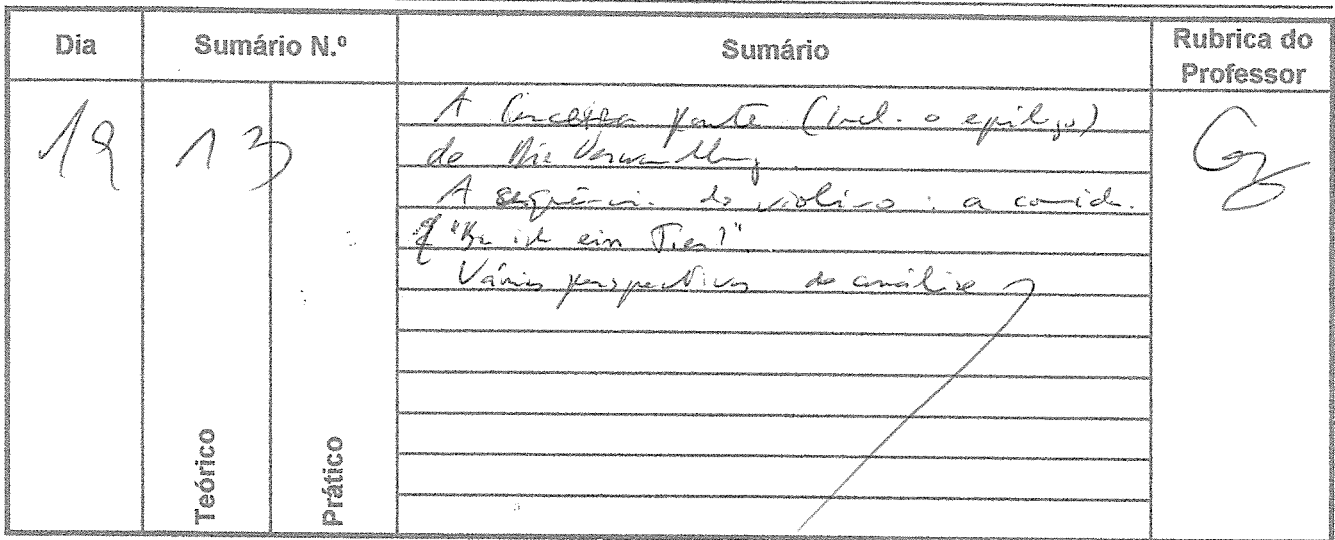 Dia Sumário N.º Sumário Rubrica do Professor
19 13
A terceira parte (incl. o epílogo)
de Die Verwandlung.
A sequência do violino: a comida.
"ich ein Tier?"
Várias perspectivas de análise
Teórico
Prático